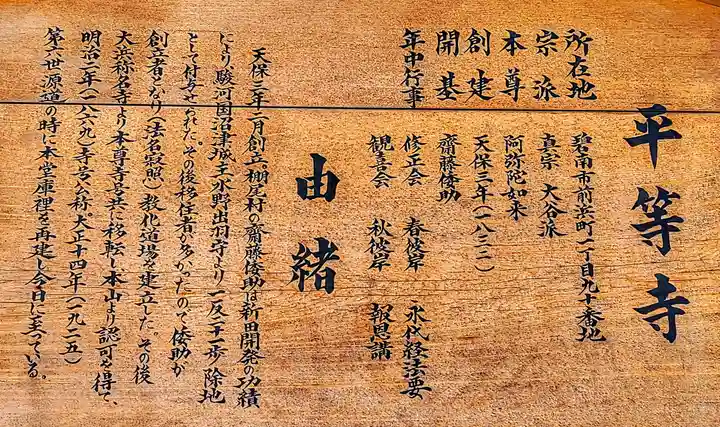 平等寺
所在地 碧南市前浜町一丁目九十番地
宗派 真宗 大谷派
本尊 阿弥陀如来
創建 天保三年(一八三二)
開基 齋藤倭助
年中行事 修正会 春彼岸 永代経法要
観喜会 秋彼岸 報恩講
由緒
天保三年二月創立。棚尾村の齋藤倭助は新田開発の功績
により、駿河国沼津城主水野出羽守より一反二十一歩除地
として付与せられた。その後移住者が多かったので倭助が
創立者となり(法名寂照)教化道場を建立した。その後
大浜称名寺より本尊寺号共に移転し本山より認可を得て、
明治二年(一八六九)寺号公称。大正十四年(一九二五)
第六世源道の時に本堂庫裡を再建し今日に至っている。